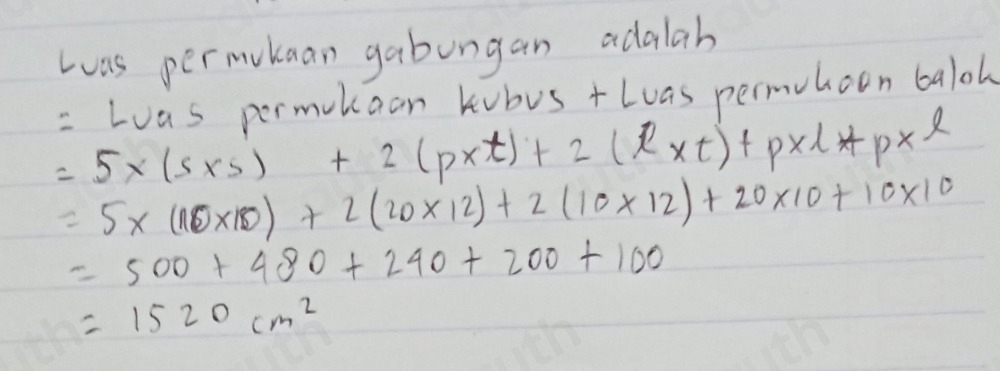 Luas permukaan gabungan adalah
= Luas permukaan kubus + Luas permukaan balok
= 5 x (s x s) + 2 (p x t) + 2 (l x t) + p x l + p x l
= 5 x (10 x 10) + 2 (20 x 12) + 2 (10 x 12) + 20 x 10 + 10 x 10
= 500 + 480 + 240 + 200 + 100
= 1520 cm²